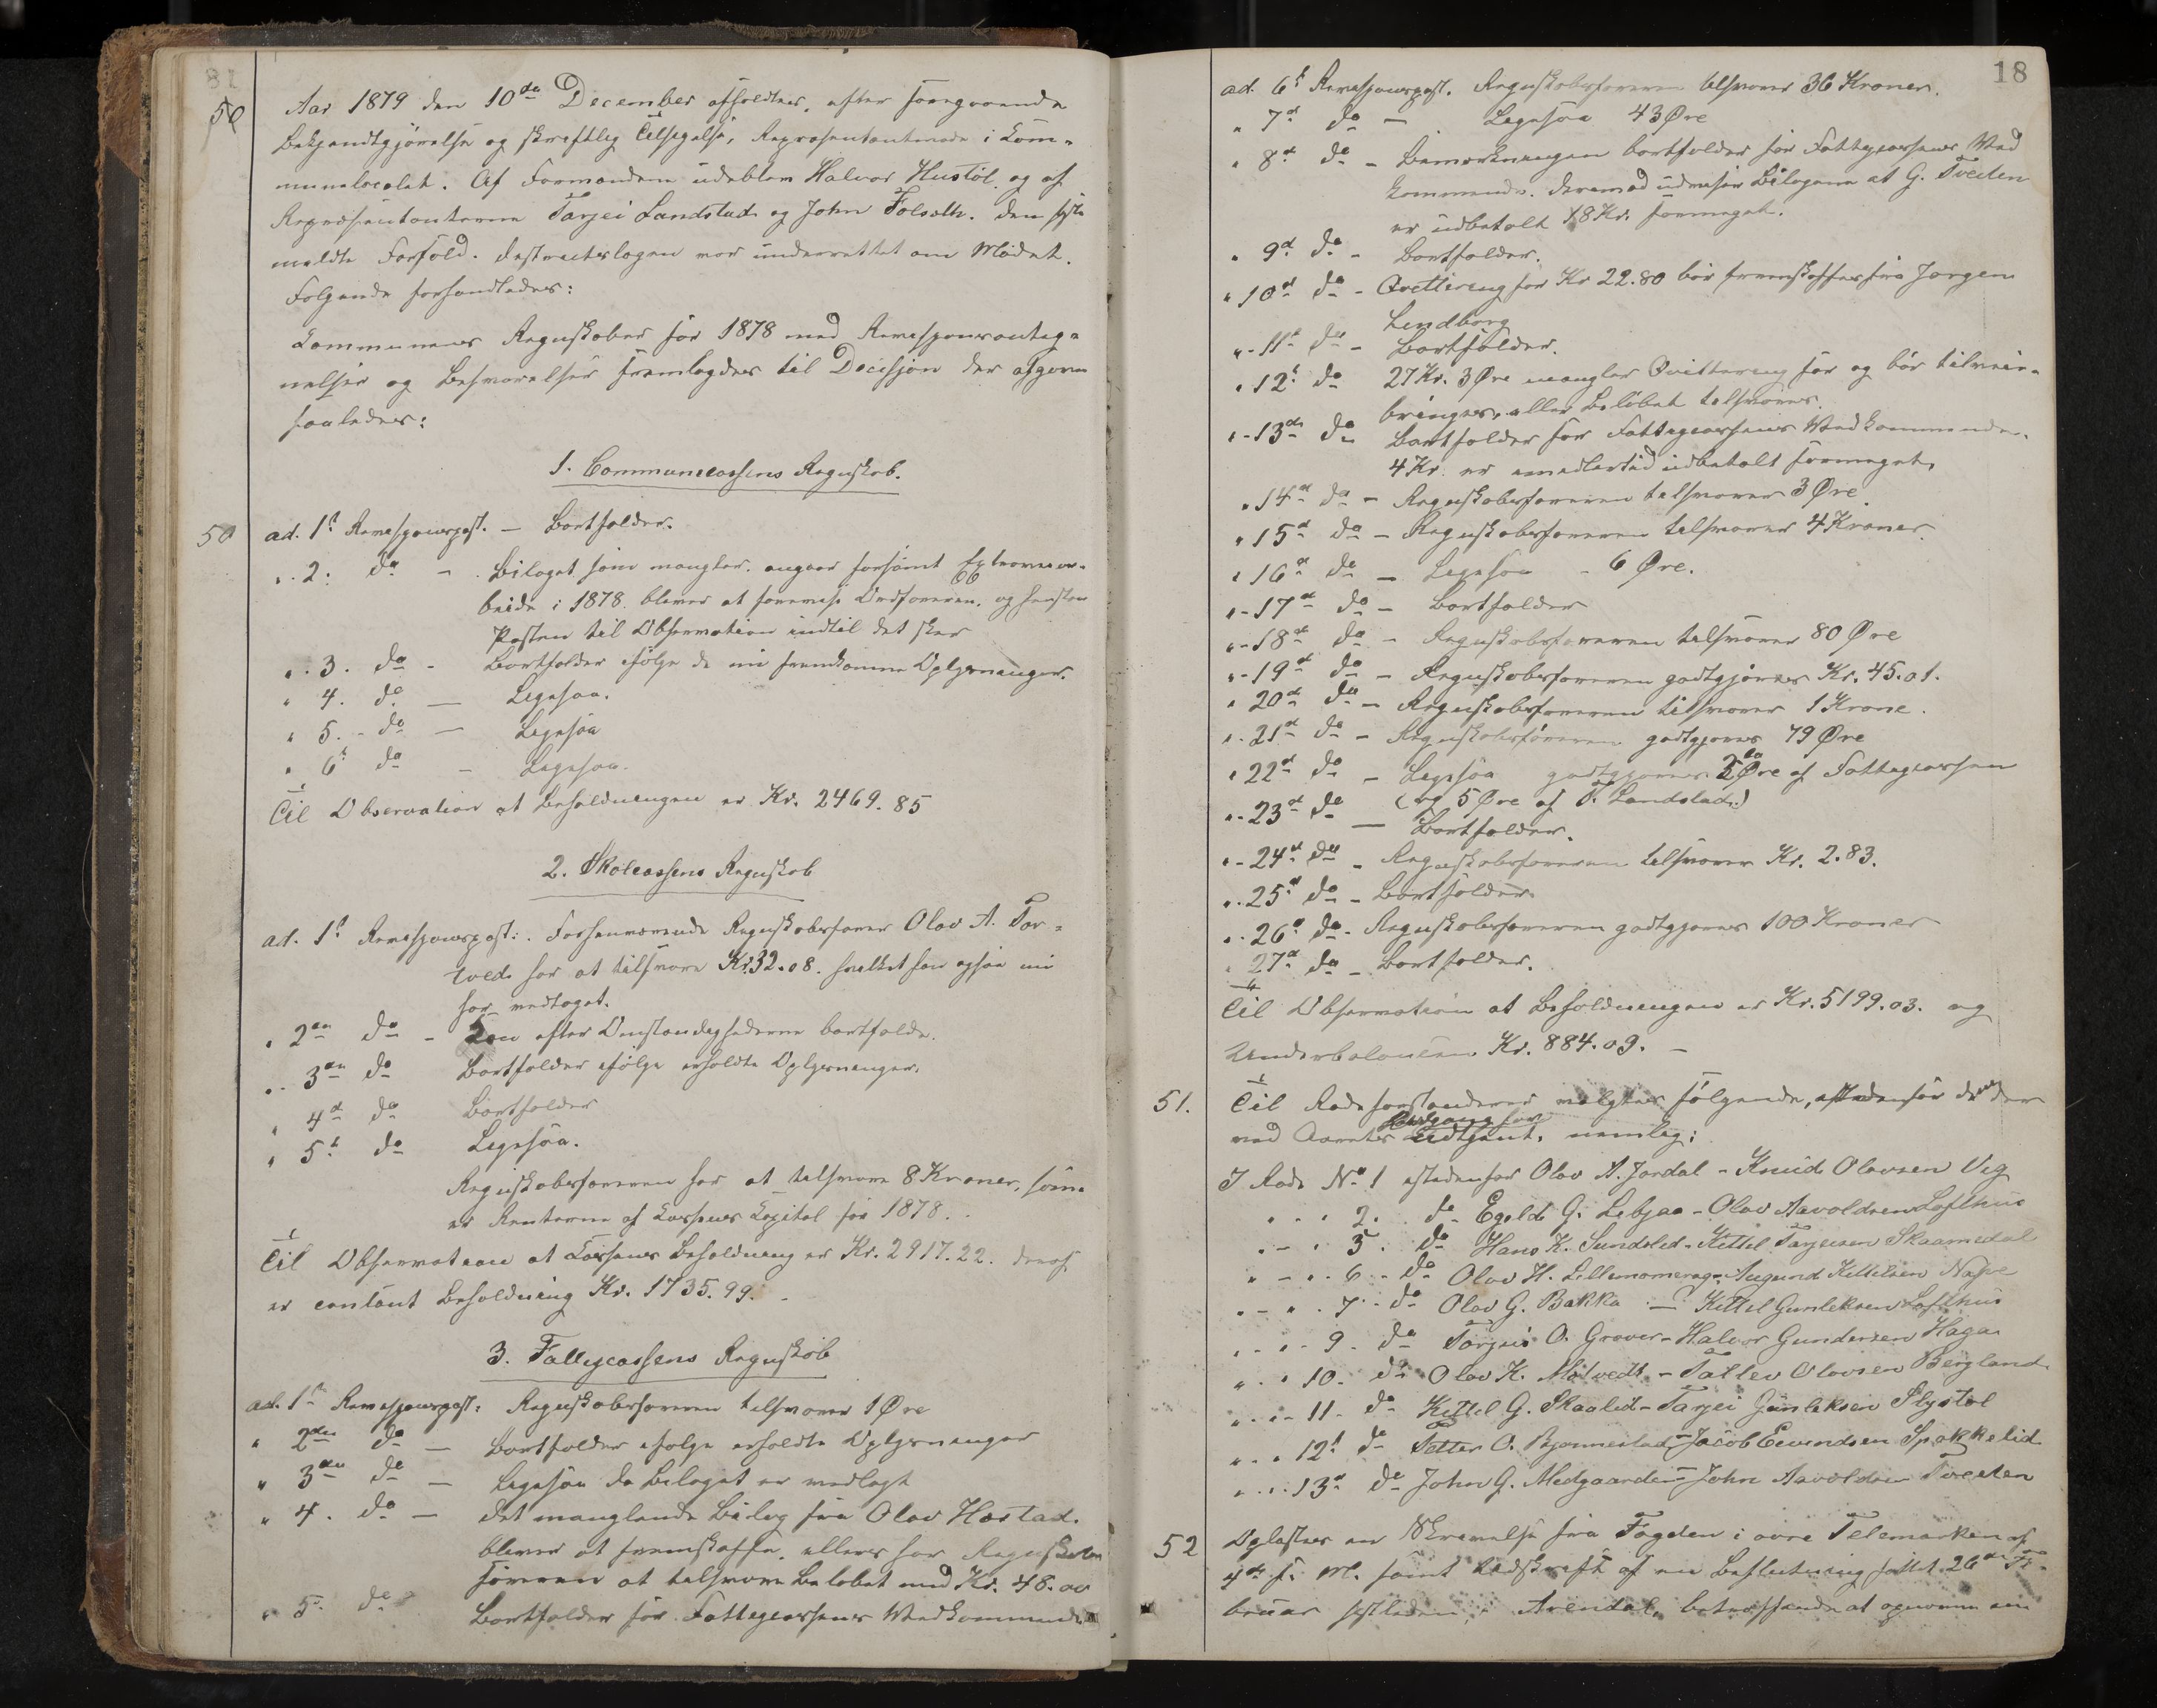 50
Aar 1879 den 10de December afholdtes, efter foregaaende
Bekjendtgjørelse og skriftlig Tilsigelse, Repræsentantmøde i Com-
munelocalet. Af Formændene udeblev Halvor Hustøl og af
Repræsentanterne Tarjei Landstad og John Folseth. Den sidst
meldte Forfald. Destrictslægen var underrettet om Mødet.
Følgende forhandledes:
Communens Regnskaber for 1878 med Revisjonsanteg-
nelser og Besvarelser fremlagdes til Decisjon der afgaves
saaledes:
1. Communecassens Regnskab.
50 ad. 1ste Revisjonspost. — Bortfalder.
" 2. do — Bilaget som mangler, angaar forsømt Extravear-
beide i 1878. bliver at forevise Ordføreren, og henstaar
Posten til Observation indtil det sker
" 3. do - Bortfalder ifølge de nu fremkomne Oplysninger.
" 4. do — Ligesaa.
" 5. - do — Ligesaa
" 6t do — Ligesaa.
Til Observation at Beholdningen er Kr. 2469.85
2. Skolecassens Regnskab
ad. 1st Revisjonspost: Forhenværende Regnskabsfører Olav A. Tor-
tvedt har at tilsvare Kr. 32.08. hvilket han ogsaa nu
har vedtaget.
" 2den do - Kan efter Omstændighederne bortfalde.
" 3den do Bortfalder ifølge erholdte Oplysninger.
" 4d do Bortfalder
" 5t do Ligesaa.
Regnskabsføreren har at tilsvare 8 Kroner, som
er Renterne af Kassens Kapital for 1878.
Til Observation at Kassens Beholdning er Kr. 2917.22. deraf
er contant Beholdning Kr. 1735.99.
3. Fattigcassens Regnskab
ad. 1st Revisjonspost: Regnskabsføreren tilsvarer 1 Øre
" 2den do — Bortfalder ifølge erholdte Oplysninger
" 3den do — Ligesaa da Bilaget er vedlagt
" 4. do — Det manglende Bilag fra Olav Høstad.
bliver at fremskaffe, ellers har Regnskabs
føreren at tilsvare Beløbet med Kr. 48.00
" 5. do Bortfalder for Fattigcassens Vedkommende
18
ad. 6t Revisjonspost. Regnskabsføreren tilsvarer 36 Kroner.
" 7d do — Ligesaa 43 Øre
" 8d do - Bemærkningen bortfalder for Fattigcassens Ved
kommende. Derimod udviser Bilagene at G. Tveiten
er udbetalt 18 Kr. formeget.
" 9d do - Bortfalder.
" 10d do - Qvittering for Kr 22.80 bør fremskaffes fra Jørgen
Lindborg
" - 11t do - Bortfalder.
" 12t do 27 Kr. 3 Øre mangler Qvittering for og bør tilveie-
bringes, eller Beløbet tilsvares.
" - 13de do Bortfalder for Fattigcassens Vedkommende.
4 Kr. er imidlertid udbetalt formeget.
" 14d do - Regnskabsføreren tilsvarer 3 Øre.
" 15d do - Regnskabsføreren tilsvarer 4 Kroner.
" 16d do — Ligesaa - 6 Øre.
" - 17d do - Bortfalder
" - 18d do - Regnskabsføreren tilsvarer 80 Øre
" - 19d do - Regnskabsføreren godtgjøres Kr. 45.01.
" 20d do - Regnskabsføreren tilsvarer 1 Krone.
" - 21d do - Regnskabsføreren godtgjøres 79 Øre
" 22d do - Ligesaa godtgjøres 5 Øre af Fattigcassen
(og 5 Øre af T. Landstad.)
" - 23d do — Bortfalder.
" - 24d do - Regnskabsføreren tilsvarer Kr. 2.83.
" - 25d do - Bortfalder.
" - 26d do - Regnskabsføreren godtgjøres 100 Kroner
" 27d do - Bortfalder.
Til Observation at Beholdningen er Kr. 5199.03. og
Underbalancen Kr. 884.09. —
51. Til Rodeforstandere valgtes følgende, istedenfor de der
ved Aarets Udgang har udtjent, nemlig:
I Rode No 1 istedenfor Olav A. Jordal - Knud Olavsen Vig
" - " 2. do Egild G. Libjaa - Olav Aavoldsen Lofthus
" - " 5. do Hans K. Sundslid - Kittel Tarjeisen Skaamedal
" - " 6 - do Olav H. Lillemomerag - Augund Kittilsen Nape
" - " 7 - do Olav G. Bakka — Kittel Gunleksen Lofthus
" - " 9. do Tarjei O. Graver - Halvor Gundersen Haga
" - " 10. do Olav K. Midtvedt - Tallev Olavsen Bergland
" - " 11 - do Kittel G. Skaalid - Tarjei Gunleksen Slystøl
" - " 12t do Petter O. Bjønnestad - Jacob Eivindsen Spokkelid
" - " 13d do John G. Medgaarden - John Aavoldsen Tveiten
52 Oplæstes en Skrivelse fra Fogden i øvre Telemarken af
4de f. M. samt Udskrift af en Beslutning fattet 26de Fe-
bruar sidstleden i Arendal, betræffende at opnævne en